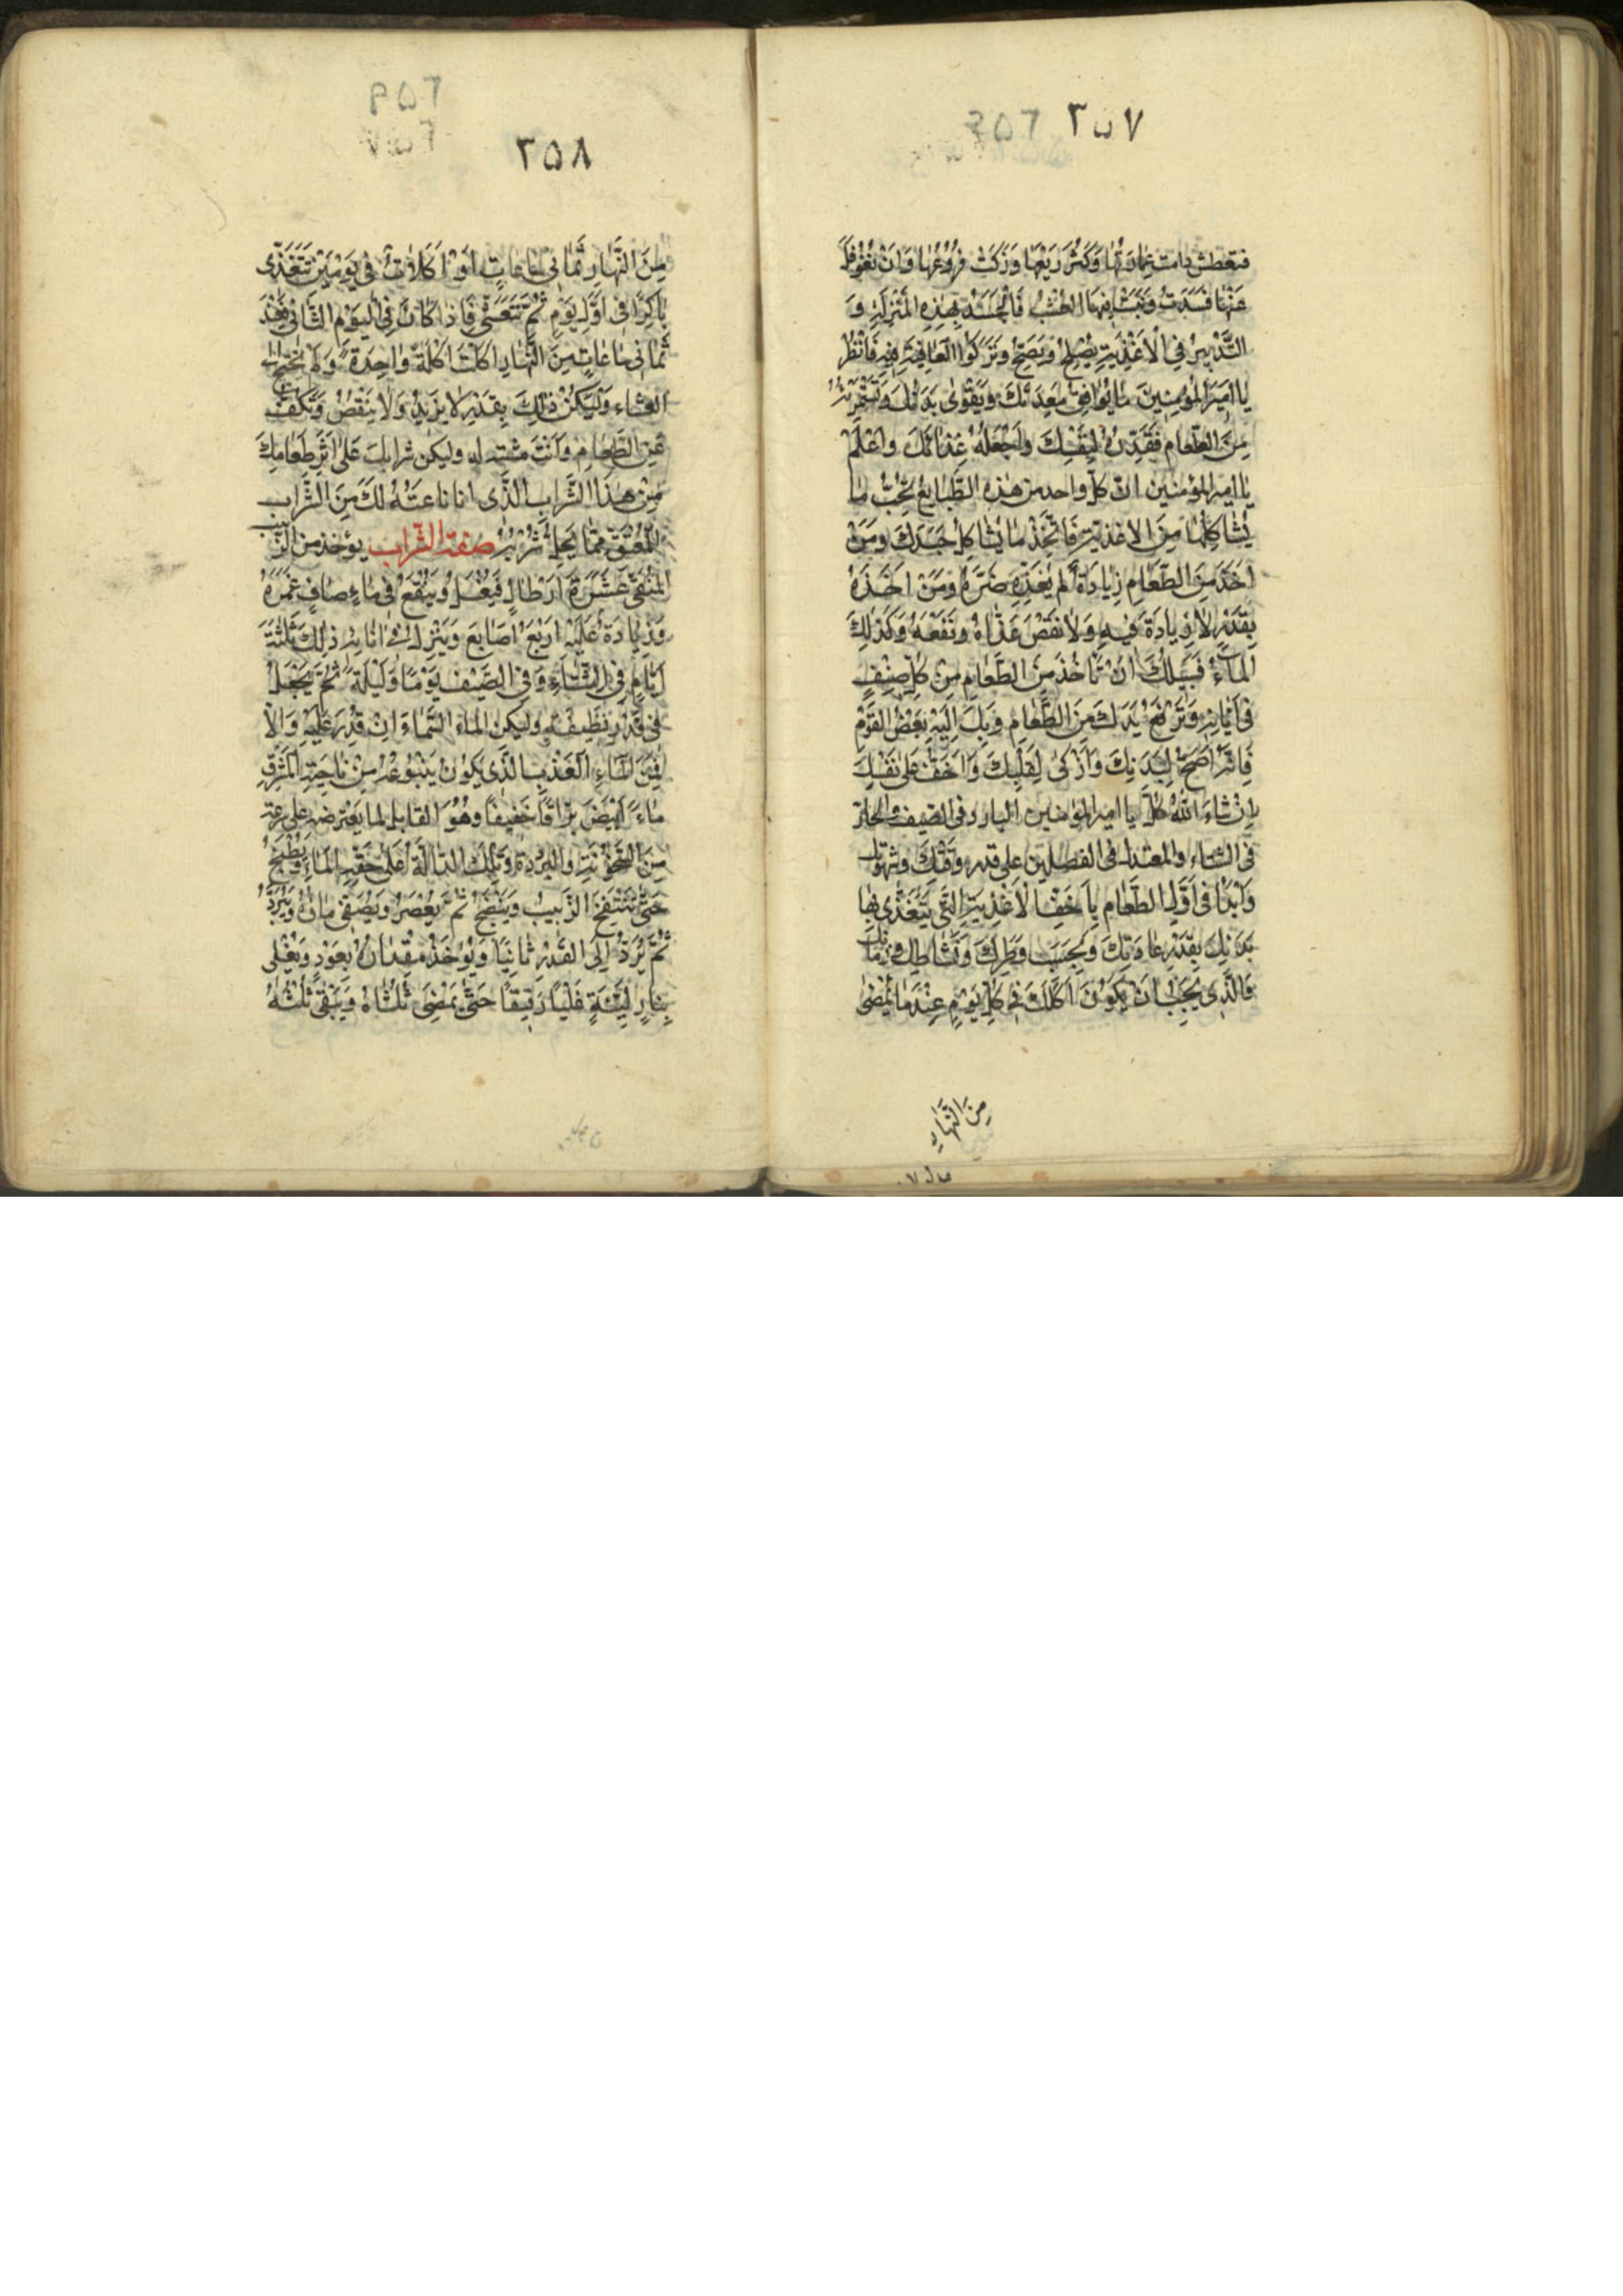 ٣٥٧
فتعطش دامت عِمارتُها وَكَثُرَ رَيْعُها وَزَكَتْ فُرُوعُها وَانْ تُغُوفِلَ
عَنْها فَسَدَتْ وَنَبَتَ فيهَا العُشْبُ فَالْجَسَدُ بِهٰذِهِ المَنْزِلَةِ وَ
التَّدْبيرُ فِي الْاَغْذِيَةِ يُصْلِحُ وَيَصِحُّ وَتَزْكُوا العافِيَةُ فيهِ فَانْظُرْ
يا اَميرَ المُؤمِنينَ ما يُوافِقُ مَعِدَتَكَ وَيَقْوىٰ بَدَنُكَ وَتَسْتَمْرِئُهُ
مِنَ الطَّعامِ فَقَدِّرْهُ لِنَفْسِكَ وَاجْعَلْهُ غِذائَكَ وَاعْلَمْ
يا امير المؤمنين انّ كلّ واحد من هذه الطَّبايع تُحِبُّ ما
يُشاكِلُها مِنَ الاغذيةِ فَاتَّخِذْ ما يُشاكِلُ جَسَدَكَ وَمَنْ
اَخَذَ مِنَ الطَّعامِ زِيادَةً لَم يُغَذِّهِ ضَرَّهُ وَمَنْ اَخَذَهُ
بِقَدْرٍ لا زِيادَةَ فيهِ وَلا نَقْصَ غَذاهُ وَنَفَعَهُ وَكَذٰلِكَ
الماءُ فَسَبيلُكَ اَنْ تَأخُذَ مِنَ الطَّعامِ مِنْ كُلِّ صِنْفٍ
فى اَيّانِهِ وَتَرْفَعَ يَدَكَ مِنَ الطَّعامِ وَبِكَ اِلَيْهِ بَعْضُ القَرَمِ
فَاِنَّهُ اَصَحُّ لِبَدَنِكَ وَاَزْكىٰ لِقَلْبِكَ وَاَخَفُّ عَلىٰ نَفْسِكَ
اِنْ شاءَ اللهُ كُلْ يا امير المؤمنين البارد فى الصيف والحارّ
فى الشتاء والمعتدل فى الفصلين على قدر قوّتك وشهوتك
وَابْدَأ فى اَوَّلِ الطَّعامِ بِاَخَفِّ الْاَغْذِيَةِ الَّتى يَتَغَذّى بِها
بَدَنُكَ بِقَدْرِ عادَتِكَ وَبِحَسَبِ وَطَرِكَ وَنَشاطِكَ وَزَمانِكَ
فَالَّذى يَجِبُ اَنْ يَكُونَ اَكْلُكَ فى كُلِّ يَوْمٍ عِنْدَما يَمْضى
مِنَ النَّهارِ
٣٥٨
مِنَ النَّهارِ ثَمانى ساعاتٍ اَوْ اَكَلاتٌ فى يَوْمَيْنِ تَتَغَذّى
باكِرًا فى اَوَّلِ يَوْمٍ ثُمَّ تَتَعَشّى فَاِذا كانَ فِى الْيَوْمِ الثّانى فَعِنْدَ
ثَمانى ساعاتٍ مِنَ النَّهارِ اَكَلْتَ اَكْلَةً واحِدَةً وَلَمْ تَحْتَجْ الى
العشاء وَلْيَكُنْ ذٰلِكَ بِقَدْرٍ لا يَزيدُ وَلا يَنْقُصُ وَتَكُفُّ
عَنِ الطَّعامِ وَاَنْتَ مشتهٍ له وليكن شرابك عَلىٰ اَثَرِ طَعامِكَ
مِنْ هٰذَا الشَّرابِ الَّذى انا ناعِتُهُ لَكَ مِنَ الشَّرابِ
المُعَتَّقِ مِمّا يَحِلُّ شُرْبُهُ صفة الشراب يؤخذ من الزبيب
المُنَقّى عَشَرَةُ اَرْطالٍ فَيُغْسَلُ وَيُنْقَعُ فى ماءٍ صافٍ غَمْرَهُ
وَزِيادَةً عَلَيْهِ اَرْبَعَ اَصابِعَ وَيُتْرَكُ فى اِنائِهِ ذٰلِكَ ثَلٰثَةَ
اَيّامٍ فِى الشِّتاءِ وَفِى الصَّيْفِ يَوْمًا وَلَيْلَةً ثُمَّ يُجْعَلُ
فى قِدْرٍ نَظيفَةٍ وليكن الماءُ السَّماءَ اِنْ قُدِرَ عَلَيْهِ وَاِلّا
فَمِنَ الماءِ الْعَذْبِ الَّذى يَكُونُ يَنْبُوعُهُ مِنْ ناحِيَةِ الْمَشْرِقِ
ماءً اَبْيَضَ بَرّاقًا خَفيفًا وَهُوَ القابل لما يَعْترضه على سرعة
مِنَ السُّخُونَةِ وَالبُرُودَةِ وَتِلْكَ الدّالَّةُ عَلىٰ خِفَّةِ الماءِ وَيُطْبَخُ
حَتّىٰ يَنْتَفِخَ الزَّبيبُ وَيَنْضَجَ ثُمَّ يُعْصَرُ وَيُصَفّى ماؤُهُ وَيُبَرَّدُ
ثُمَّ يُرَدُّ اِلَى القِدْرِ ثانِيًا وَيُؤْخَذُ مِقْدارُهُ بِعُودٍ وَيُغْلى
بِنارٍ لَيِّنَةٍ غَلْيًا رَقيقًا حَتّىٰ يَمْضِىَ ثُلُثاهُ وَيَبْقىٰ ثُلُثُهُ